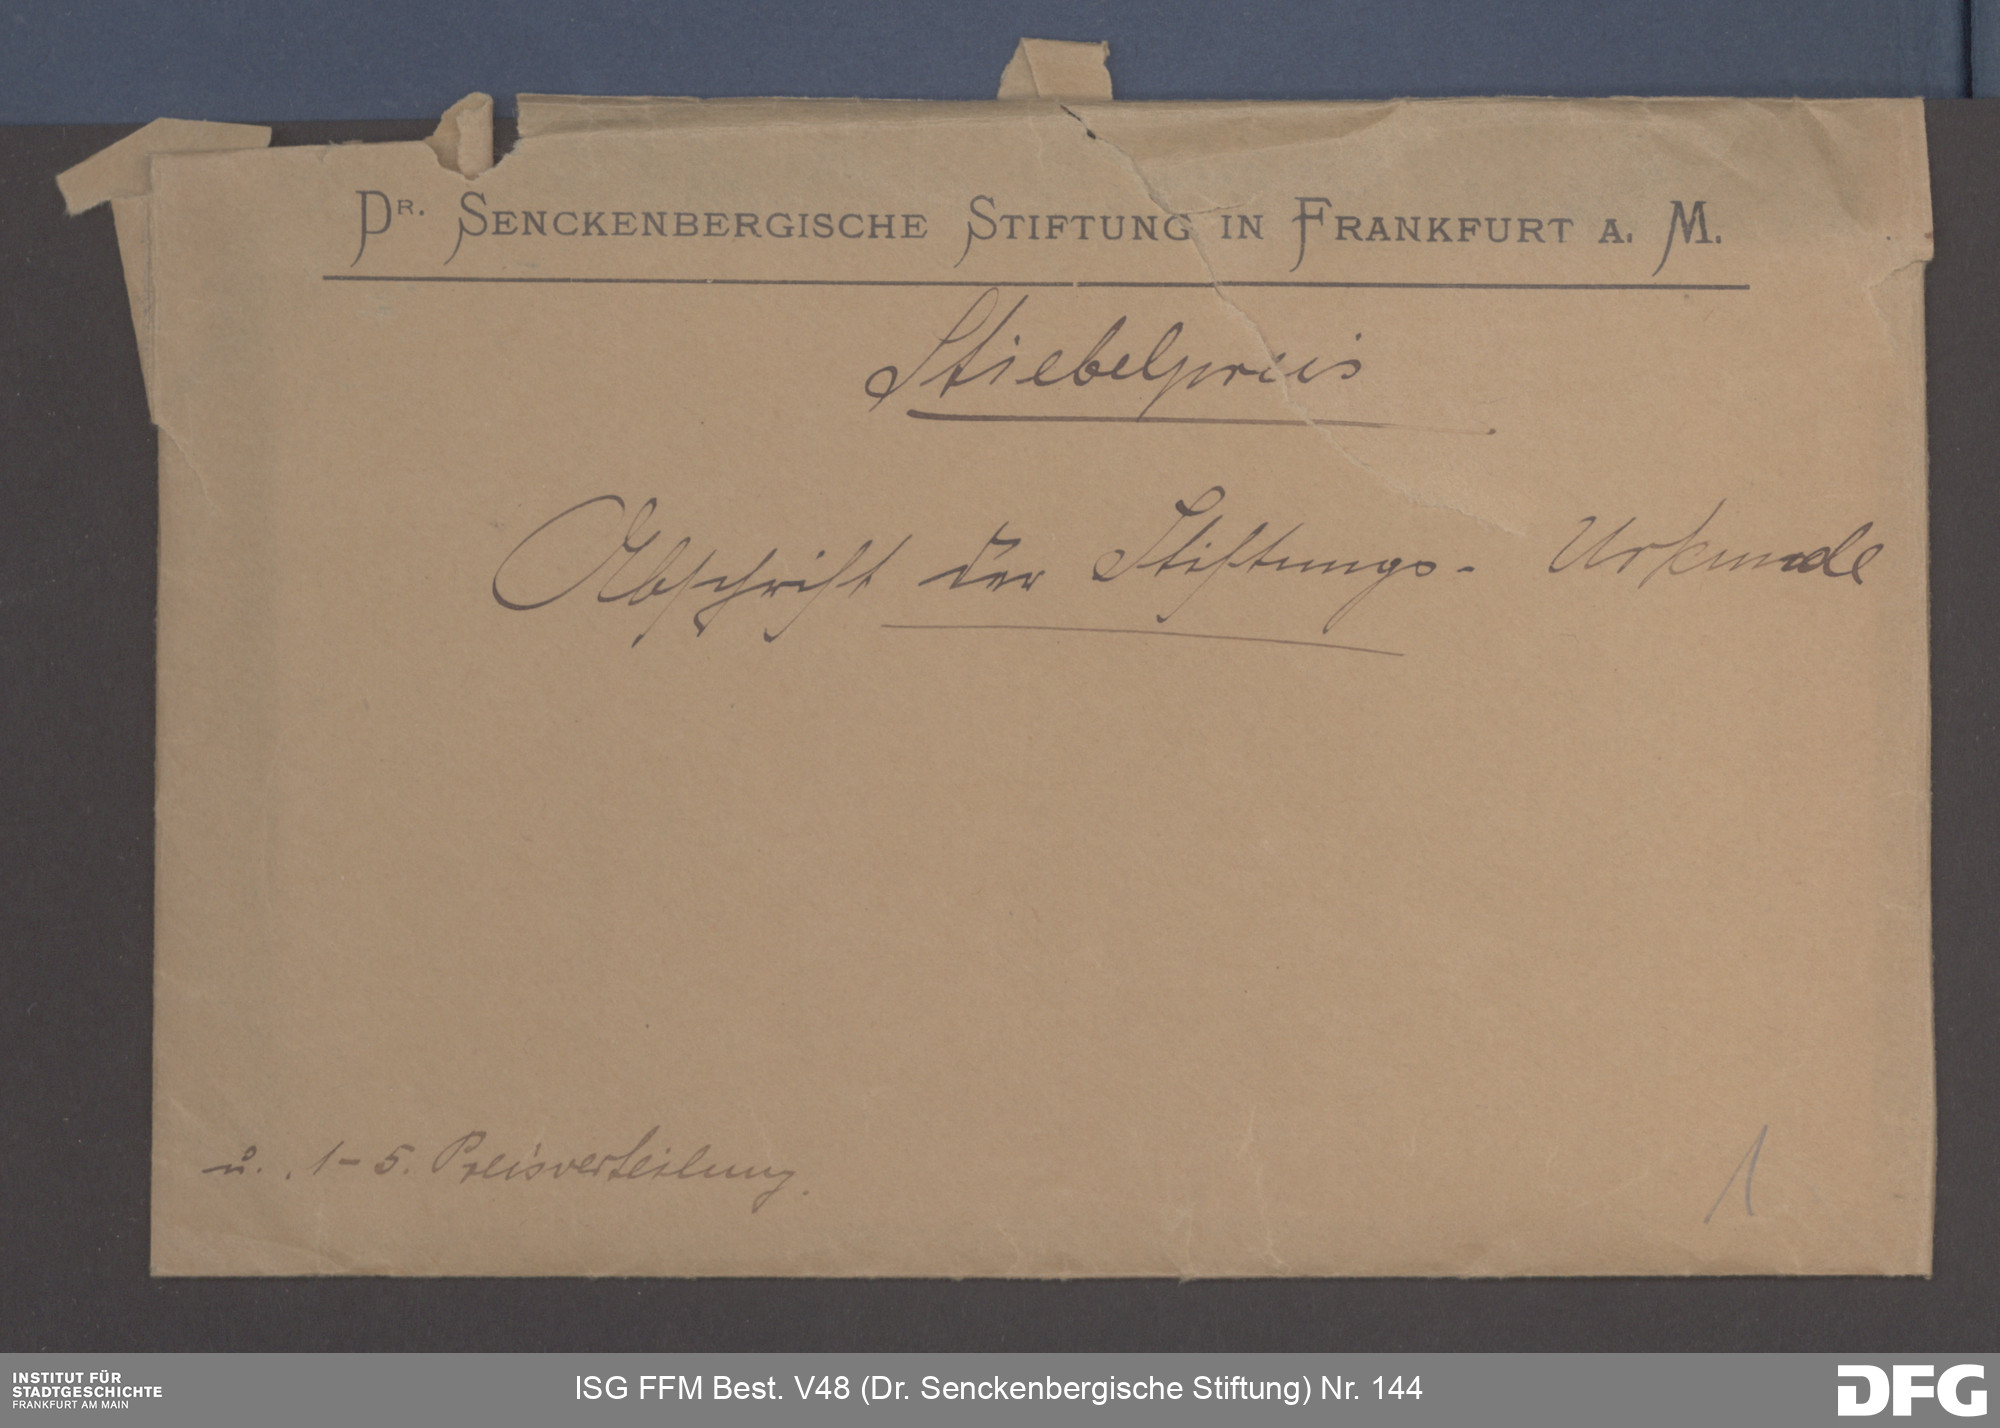 Dr. Senckenbergische Stiftung in Frankfurt a. M.
Stiebelpreis
Abschrift der Stiftungs- Urkunde
u. 1-5. Preisverteilung.
1
INSTITUT FÜR
STADTGESCHICHTE
FRANKFURT AM MAIN
ISG FFM Best. V48 (Dr. Senckenbergische Stiftung) Nr. 144
DFG